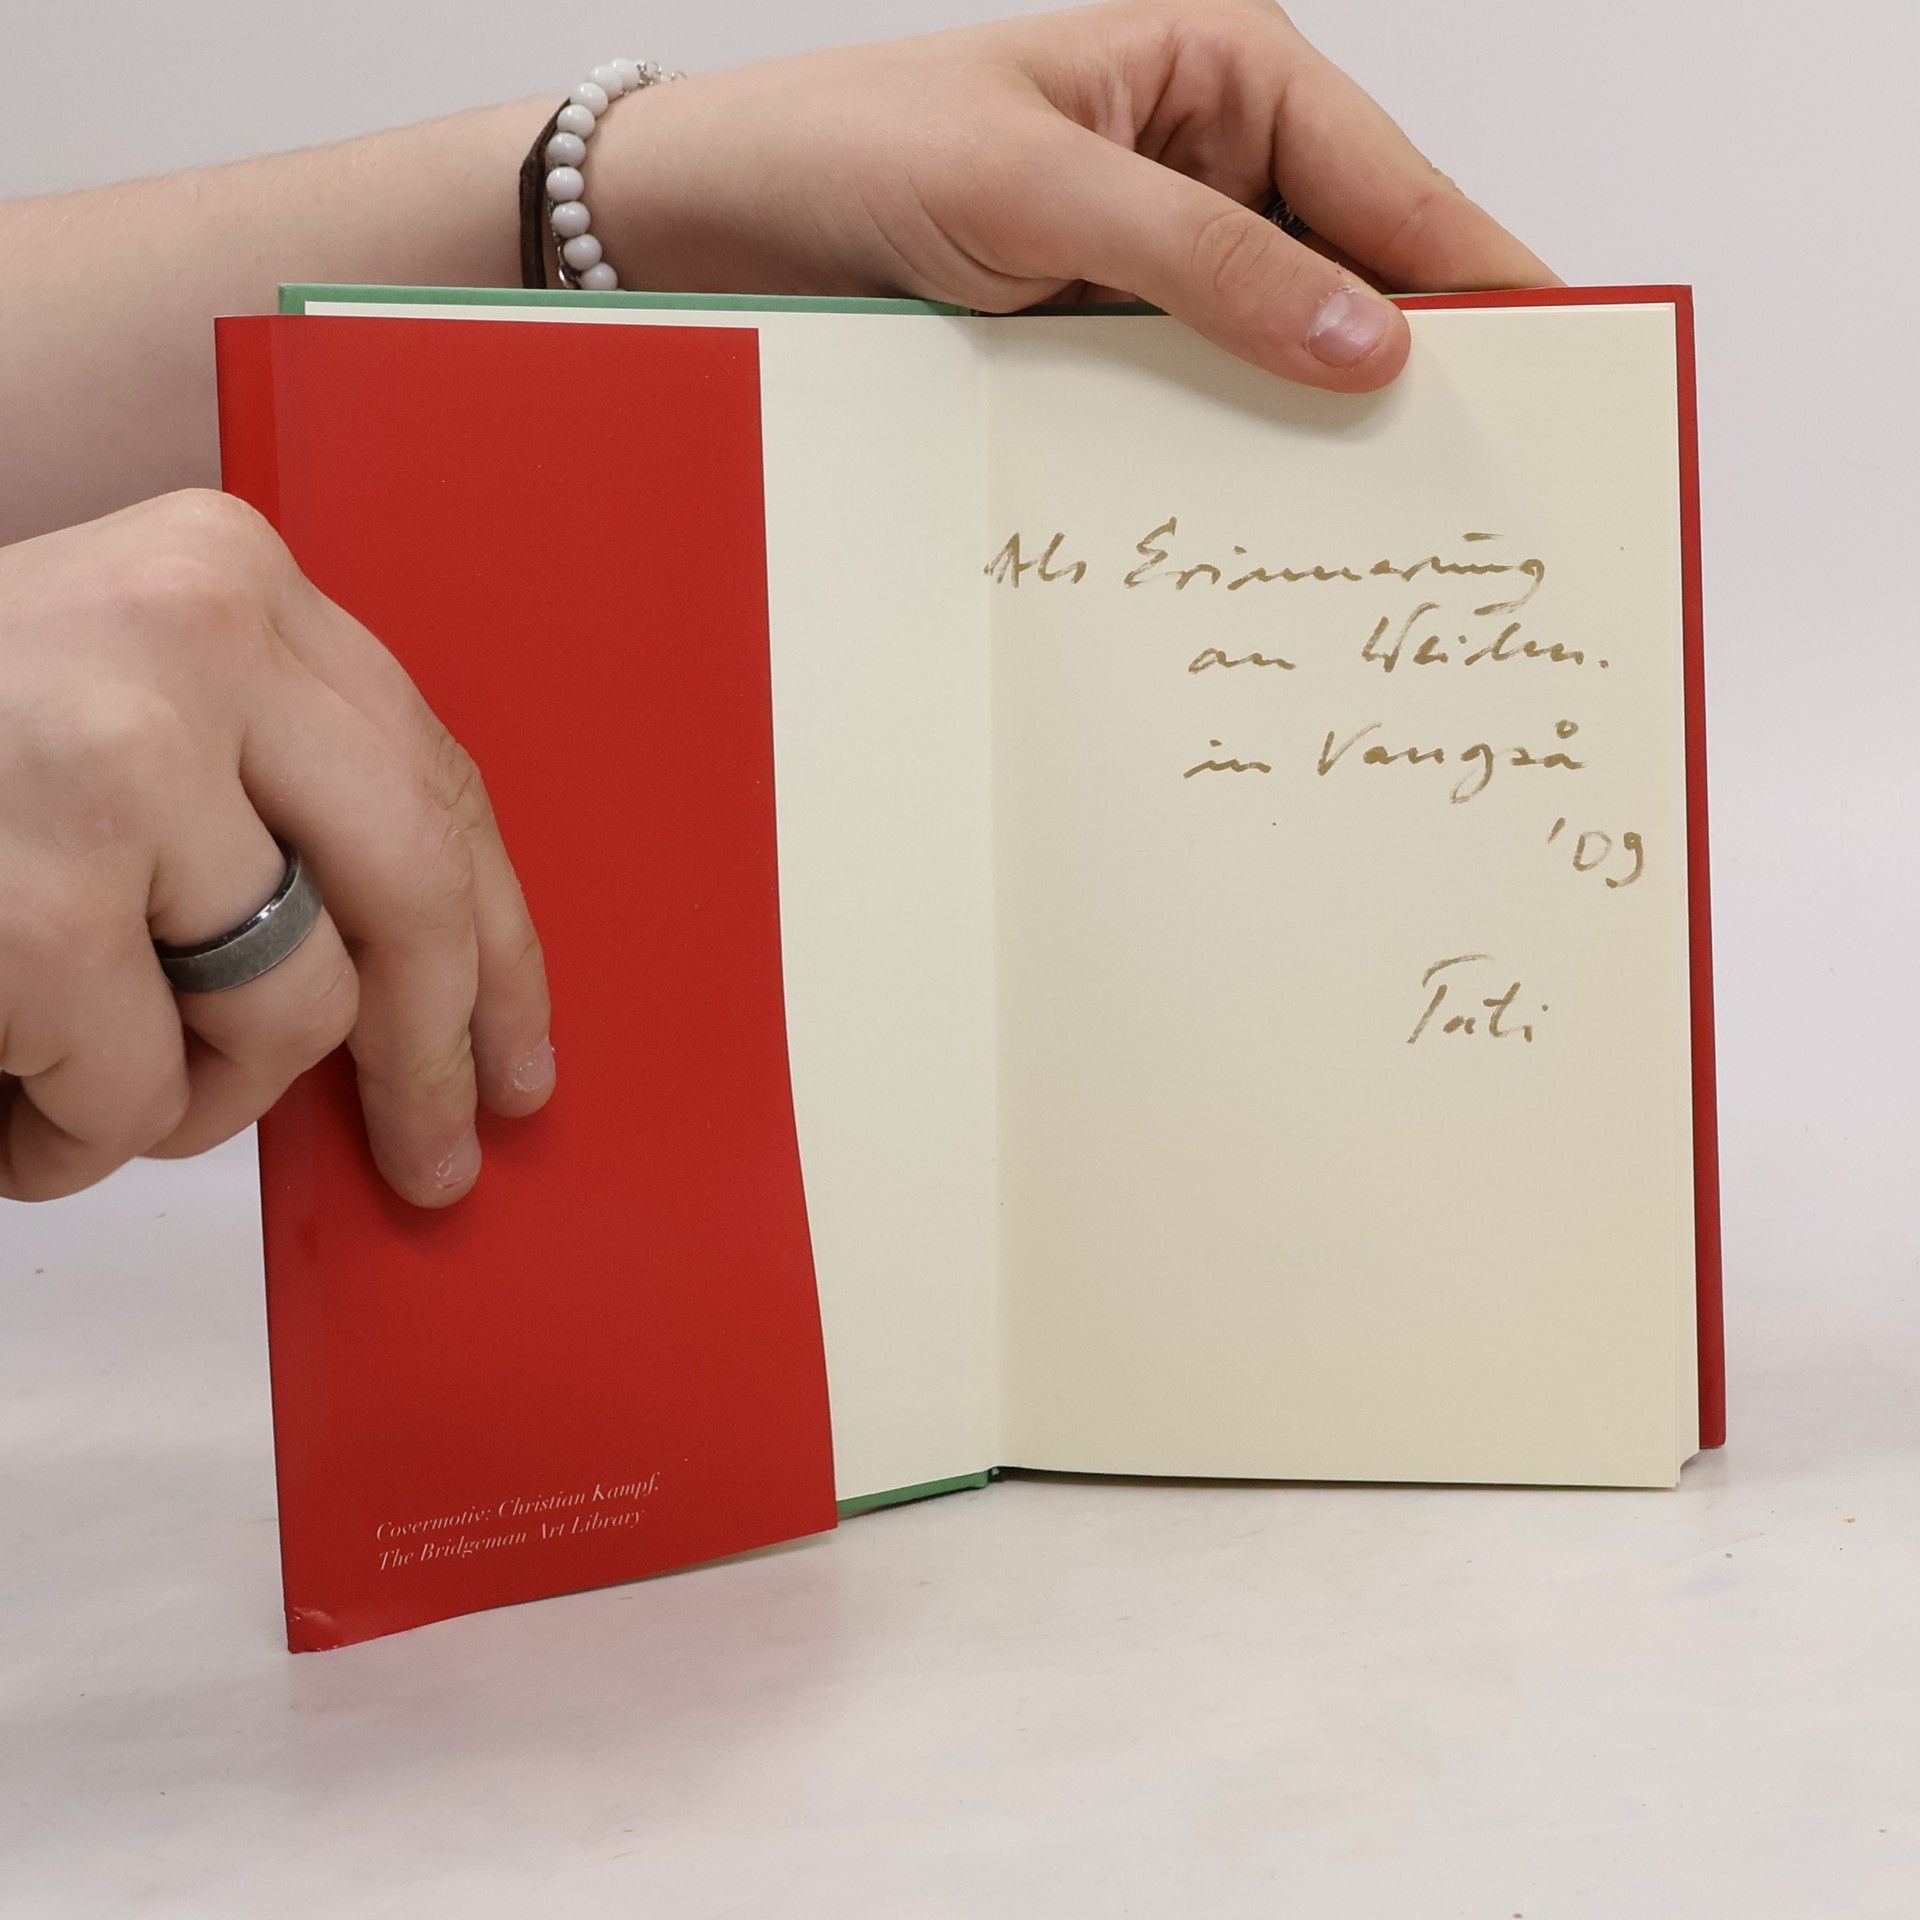 Covermotiv: Christian Kampf,
The Bridgeman Art Library
Als Erinnerung
an
in Vangså
'09
Tati